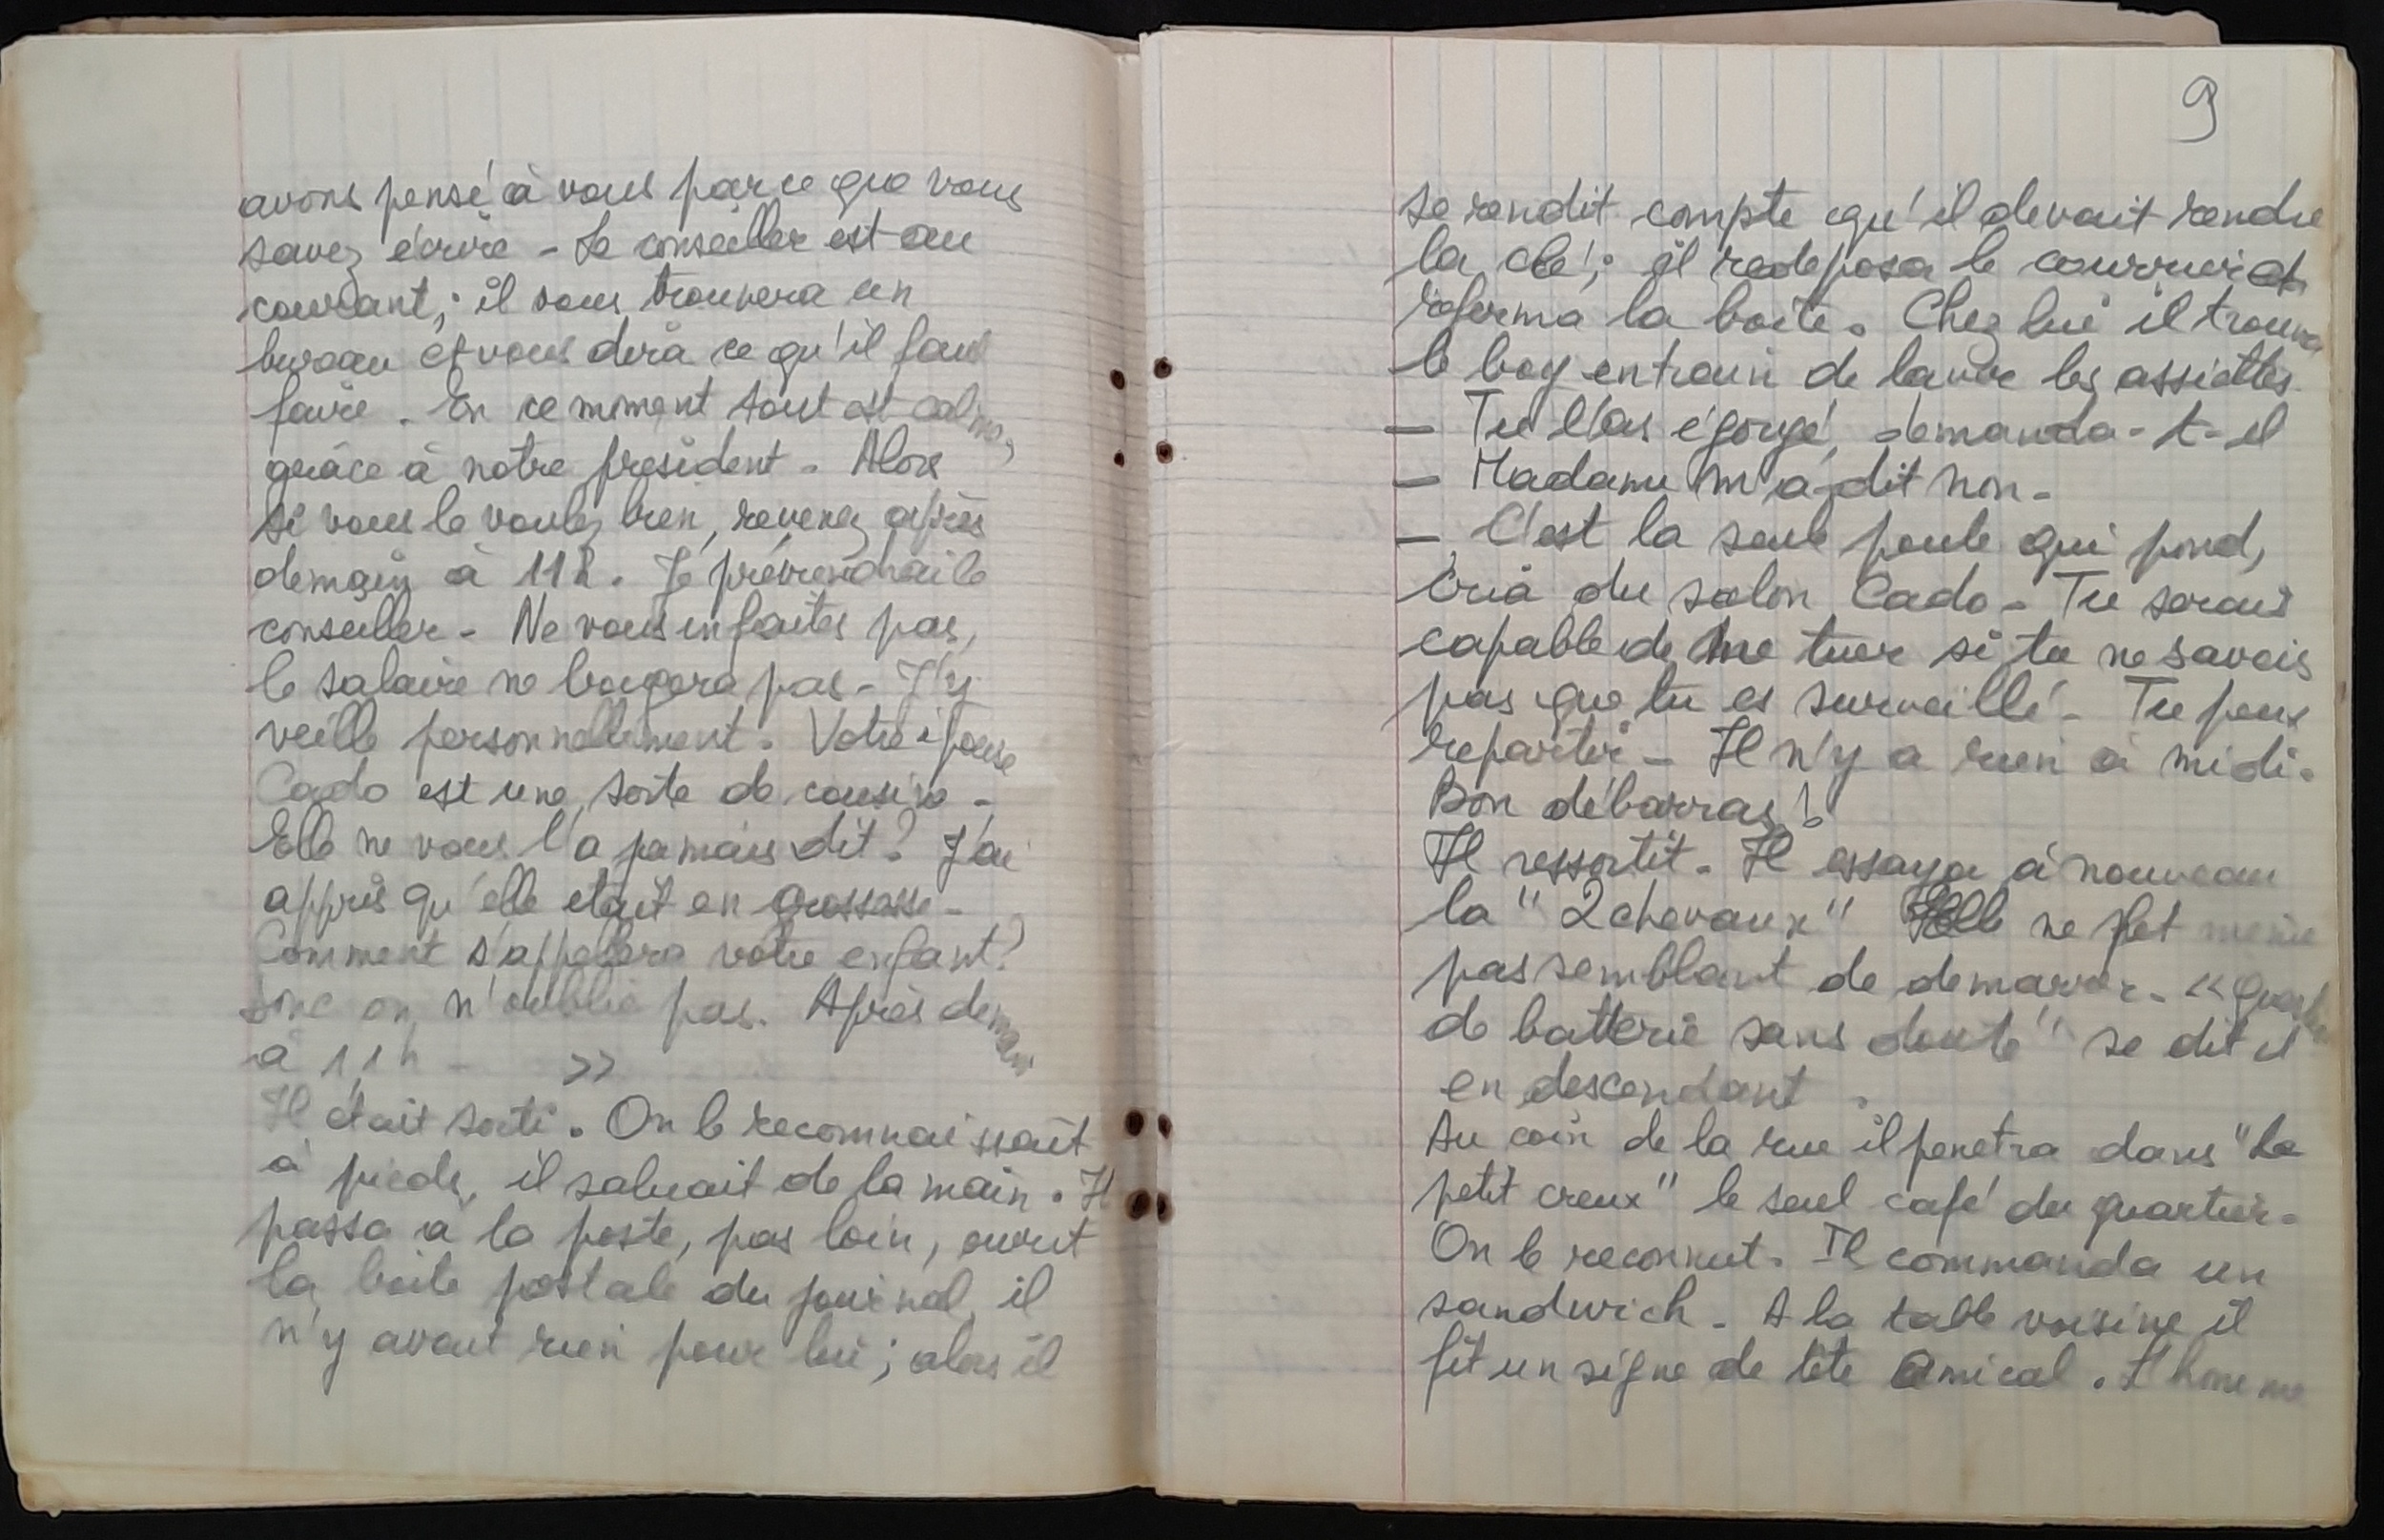 avons pensé à vous parce que vous
savez écrire - Le conseiller est au
courant; il vous trouvera un
bureau et vous dira ce qu'il faut
faire. En ce moment tout est calme,
grâce à notre president. Alors
si vous le voulez bien, revenez après
demain à 11h. Je préviendrai le
conseiller - Ne vous en faites pas,
le salaire ne bougera pas - J'y
veille personnellement. Votre épouse
Cado est une sorte de cousine -
Elle ne vous l'a jamais dit? J'ai
appris qu'elle etait en grossesse -
Comment s'appellera votre enfant?
Donc on n'oublie pas. Après demain
à 11h - >>
Il était sorti. On le reconnaissait
à pieds, il saluait de la main. Il
passa à la poste, pas loin, ouvrit
la boite postale du journal, il
n'y avait rien pour lui; alors il
9
se rendit compte qu'il devait rendre
la clé; il redeposa le courrier et
referma la boite. Chez lui il trouva
le boy entrain de laver les assiettes.
- Tu l'as égorgé, demanda-t-il
- Madame m'a dit non -
- C'est la seule poule qui pond,
cria du salon Cado - Tu serais
capable de me tuer si tu ne savais
pas que tu es surveillé - Tu peux
repartir - Il n'y a rien à midi.
Bon débarras!
Il ressortit. Il essaya à nouveau
la "2 chevaux" Elle ne fit meme
pas semblant de demarrer - «
de batterie sans doute" se dit il
en descendant.
Au coin de la rue il penetra dans "Le
petit creux" le seul café du quartier -
On le reconnut. Il commanda un
sandwich - A la table voisine il
fit un signe de tête amical. L'homme